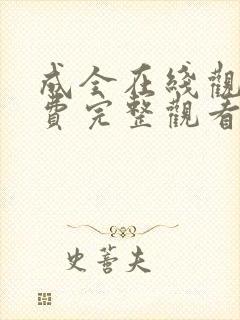 成全在线觀
費完整觀看
史薈夫